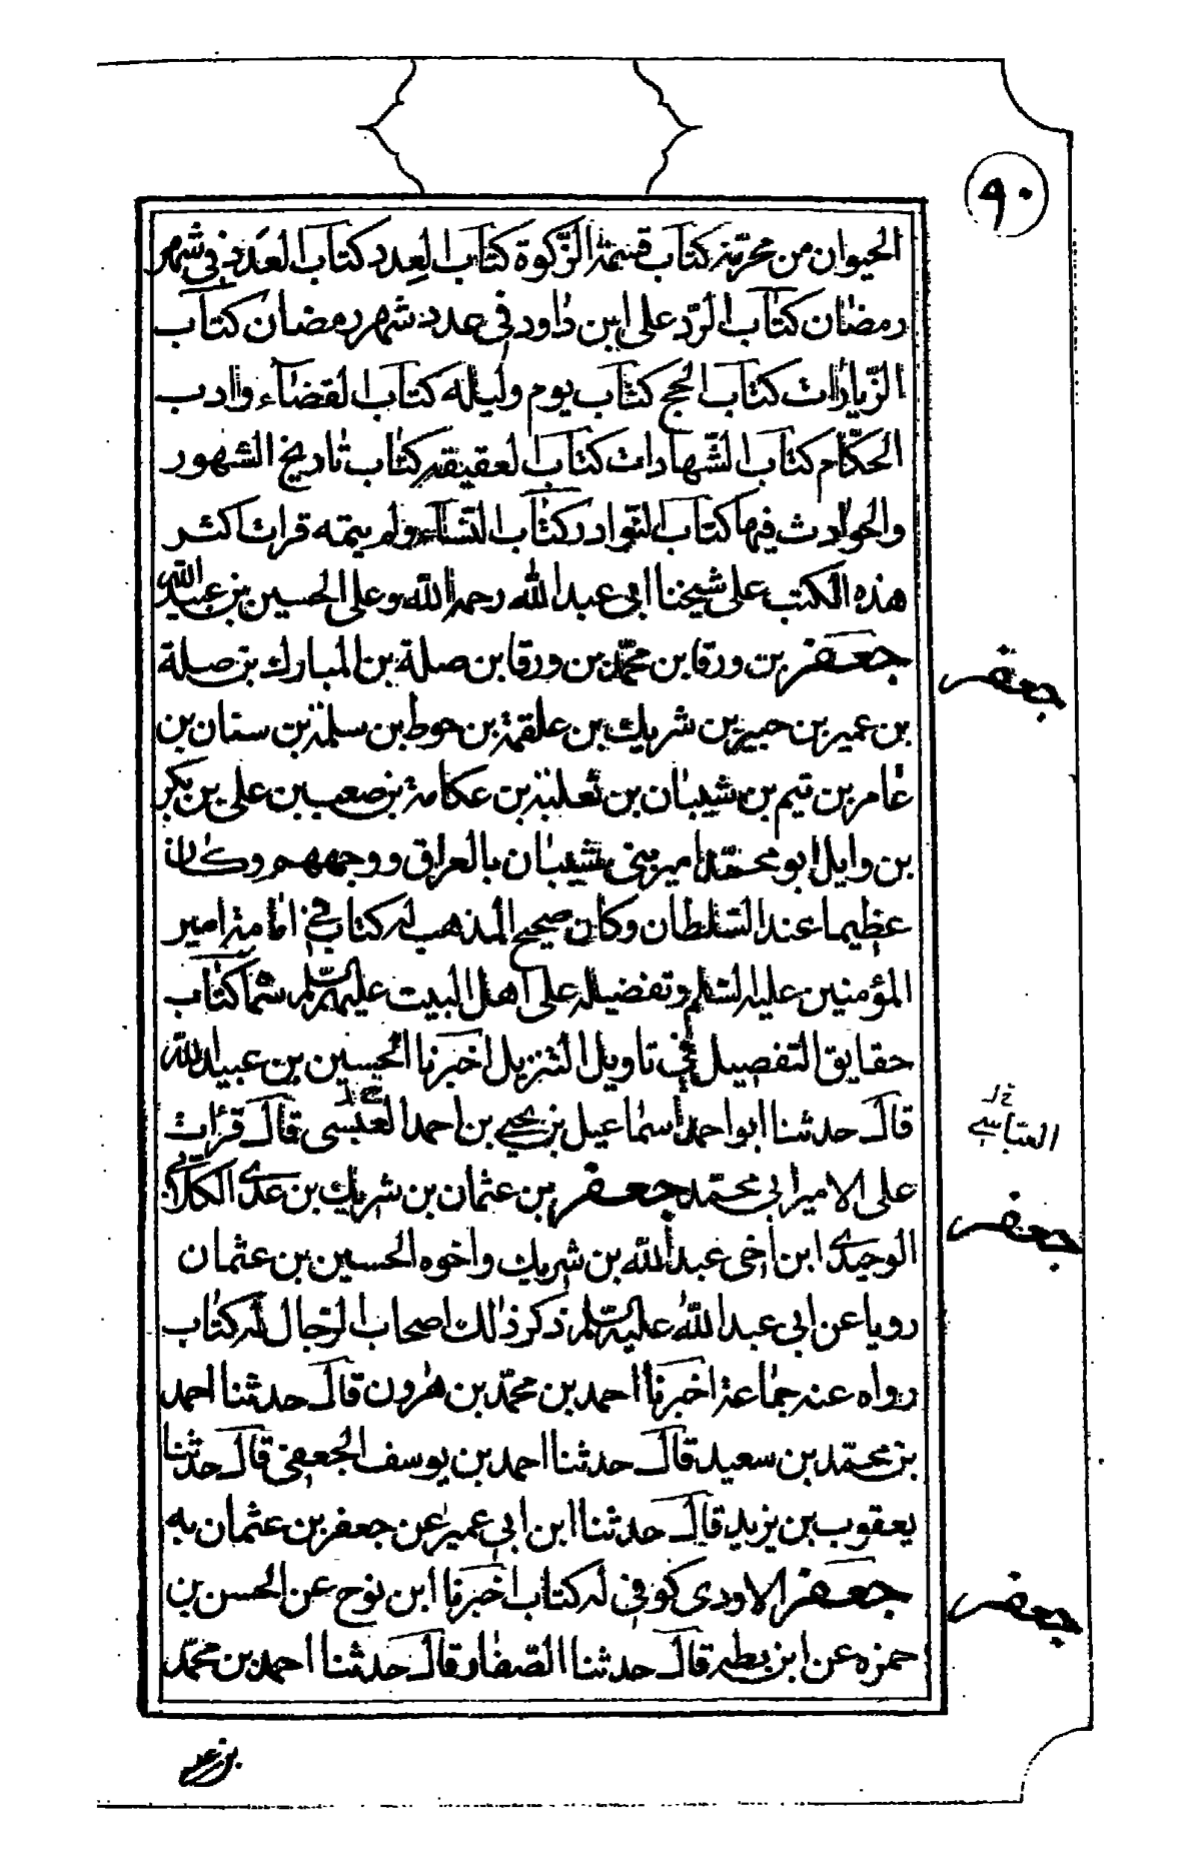 ٩٠
الحيوان من محرمه كتاب قسمة الزكوة كتاب العدد كتاب العدد فى شهر
رمضان كتاب الرد على ابن داود فى عدد شهر رمضان كتاب
الزيارات كتاب الحج كتاب يوم وليلة كتاب القضاء وادب
الحكام كتاب الشهادات كتاب العقيقه كتاب تاريخ الشهور
والحوادث فيها كتاب النوادر كتاب النساء ولم يتمه قرات اكثر
هذه الكتب على شيخنا ابى عبد الله رحمه الله وعلى الحسين بن عبيد الله
جعفر بن ورقا بن محمد بن ورقا بن صلة بن المبارك بن صلة
جعفر
بن عمير بن جبير بن شريك بن علقمة بن حوط بن سلمة بن سنان بن
عامر بن تيم بن شيبان بن ثعلبة بن عكامة بن صعب بن على بن بكر
بن وايل ابو محمد امير بنى شيبان بالعراق ووجههم وكان
عظيما عند السلطان وكان صحيح المذهب له كتاب فى امامة امير
المؤمنين عليه السلم وتفضيله على اهل البيت عليهم السلم سماه كتاب
حقايق التفصيل فى تاويل التنزيل اخبرنا الحسين بن عبيد الله
قال حدثنا ابو احمد اسماعيل بن يحيى بن احمد العبسى قال قرات
على الامير ابى محمد جعفر بن عثمان بن شريك بن عدى الكلابى
جعفر
الوحيدى ابن اخى عبد الله بن شريك واخوه الحسين بن عثمان
رويا عن ابى عبد الله عليه السلم ذكر ذلك اصحاب الرجال له كتاب
رواه عنه جماعة اخبرنا احمد بن محمد بن هرون قال حدثنا احمد
بن محمد بن سعيد قال حدثنا احمد بن يوسف الجعفى قال حدثنا
يعقوب بن يزيد قال حدثنا ابن ابى عمير عن جعفر بن عثمان به
جعفر الاودى كوفى له كتاب اخبرنا ابن نوح عن الحسن بن
جعفر
حمزه عن ابن بطه قال حدثنا الصفار قال حدثنا احمد بن محمد